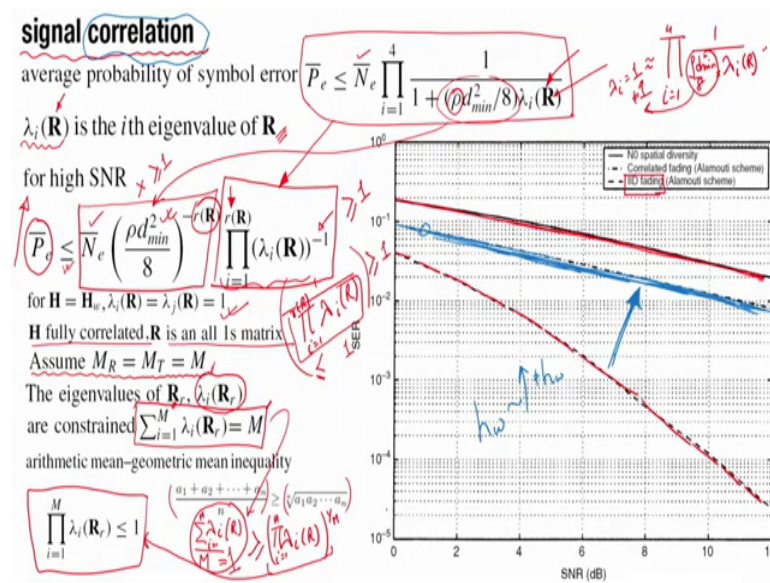 signal correlation
average probability of symbol error P̅_e ≤ N̅_e ∏_{i=1}^{4} 1 / (1 + (ρd²_min/8)λ_i(R))
λ_i(R) is the ith eigenvalue of R
for high SNR
≥1
P̅_e ≤ N̅_e (ρd²_min / 8)^{-r(R)} ∏_{i=1}^{r(R)} (λ_i(R))^{-1}
≥1
for H = H_w, λ_i(R) = λ_j(R) = 1
H fully correlated, R is an all 1s matrix
∏_{i=1}^{r(R)} λ_i(R)
≤ 1
≥1
Assume M_R = M_T = M
The eigenvalues of R_r, λ_i(R_r)
are constrained ∑_{i=1}^{M} λ_i(R_r) = M
arithmetic mean–geometric mean inequality
((a_1 + a_2 + ··· + a_n) / n) ≥ (ⁿ√(a_1 a_2 ··· a_n))
∏_{i=1}^{M} λ_i(R_r) ≤ 1
∑_{i=1}^{M} λ_i(R) / M = 1 ≥ (∏_{i=1}^{M} λ_i(R))^{1/M}
λ_i = 1
≈ ∏_{i=1}^{4} 1 / (ρd²_min/8 λ_i(R))
N0 spatial diversity
Correlated fading (Alamouti scheme)
IID fading (Alamouti scheme)
10^0
10^-1
10^-2
10^-3
10^-4
10^-5
SER
0 2 4 6 8 10
SNR (dB)